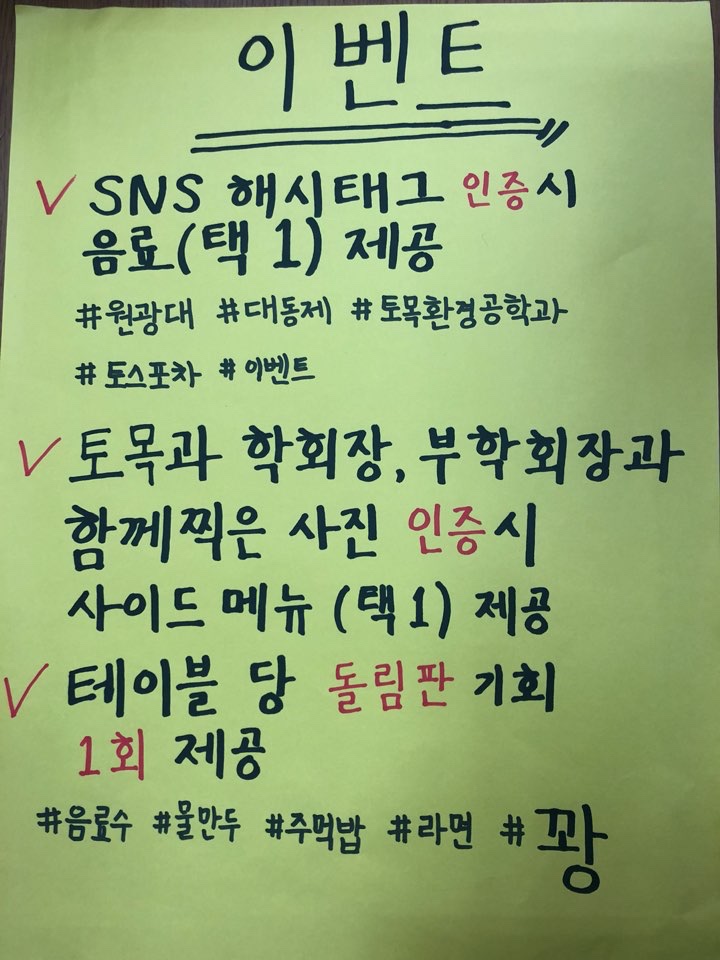 이벤트
✓ SNS 해시태그 인증시
음료(택 1) 제공
#원광대 #대동제 #토목환경공학과
#토스포차 #이벤트
✓ 토목과 학회장, 부학회장과
함께찍은 사진 인증시
사이드 메뉴 (택 1) 제공
✓ 테이블 당 돌림판 기회
1회 제공
#음료수 #물만두 #주먹밥 #라면 #꽝